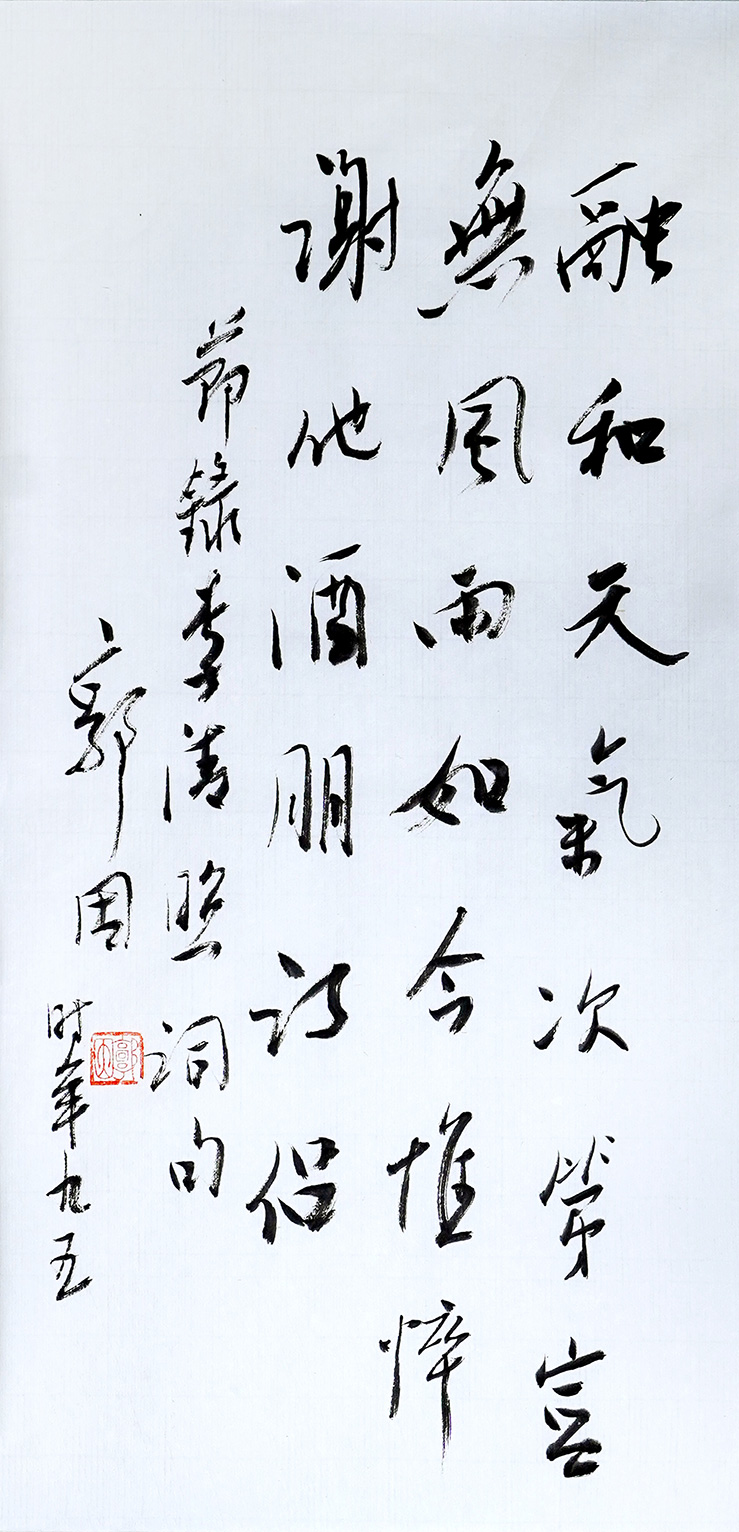 融和天氣次第豈
無風雨如今憔悴
謝他酒朋詩侣
節錄李清照詞句
郭因时年九五
郭因